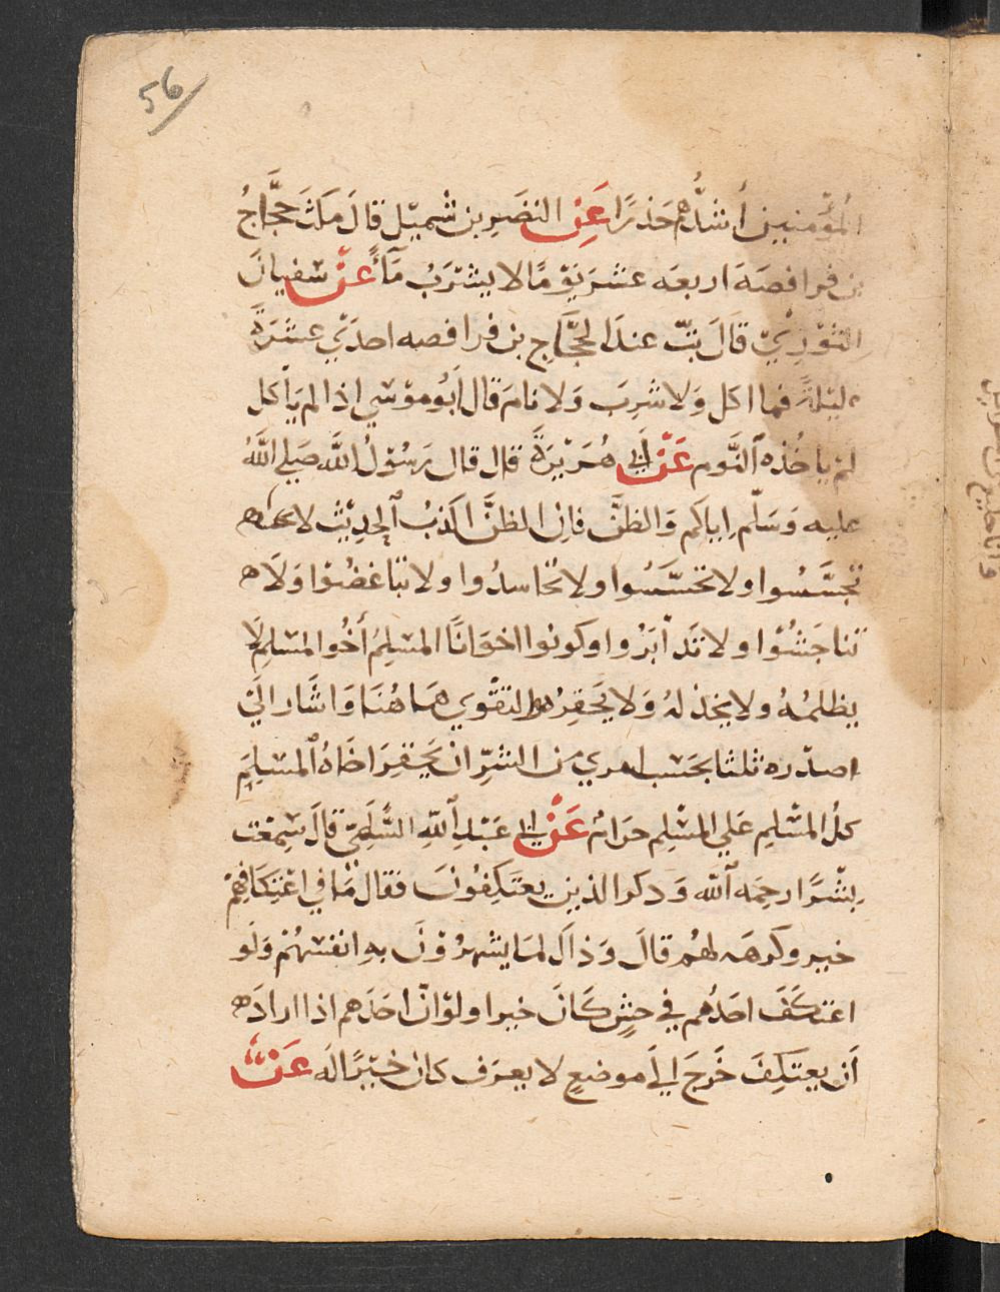 56
المُؤمنين أشدُّهم حَذرًا عَنِ النضَرِ بن شميّل قالَ مكثَ حجَّاجُ
بن فرافصَة اربعَه عشرَ يَوْمًا لا يشرَبُ مَآءً عَنْ سفيانَ
الثوْرِيّ قَالَ بتّ عندَ الحجَّاجِ بن فرافصه احدَي عشَرَةَ
ليْلةً فما اكل وَلا شرِبَ وَلا نامَ قال أبُو موسَي اذا لم يَأكل
لمْ ياخُذه النَّوم عَنْ أبي هُرَيْرَةَ قال قال رَسُوْلُ اللَّه صَلي اللَّهُ
عليه وَسَلّم اياكم وَالظنَّ فانِ الظنَّ اكذبُ الحدِيْث لا
تجسَّسُوا ولا تحسَّسُوا ولا تحَاسدُوا ولا تباغضُوْا وَلَا
تناجَشُوْا ولا تدَابَرُوا وكونوا اخوَانًا المسْلِمُ أخُوا المسْلِمِ لَا
يظلمُهُ ولا يخذلهُ وَلا يَحقِرُه التقْوي هَاهُنَا وَاشَار الَيَ
صدْره ثلثا بحَسْب امري من الشرِّ ان يَحقِرَ اخَاهُ المسْلِمَ
كلُ المسْلِمِ عَلي المسْلِم حرَامٌ عَنْ ابي عَبْدِ اللهِ السُّلَمِيّ قالَ سَمِعْت
بِشْرًا رحِمَه الله وَذكرَ الذين يعتَكِفُونَ فقال مَا في اعْتِكَافِهِمْ
خير وكرهَه لهُم قالَ وَذاكَ لمَا يشهرُوْنَ بهِ انفسَهُمْ وَلَو
اعتكَفَ احَدُهم في حشٍ كَانَ خيرا ولوْ انّ احَدَهم اذا ارادَ
اَن يعتَكِفَ خَرجَ الي مَوضعٍ لا يعرَف كانَ خيْرًا لَه عَنْ